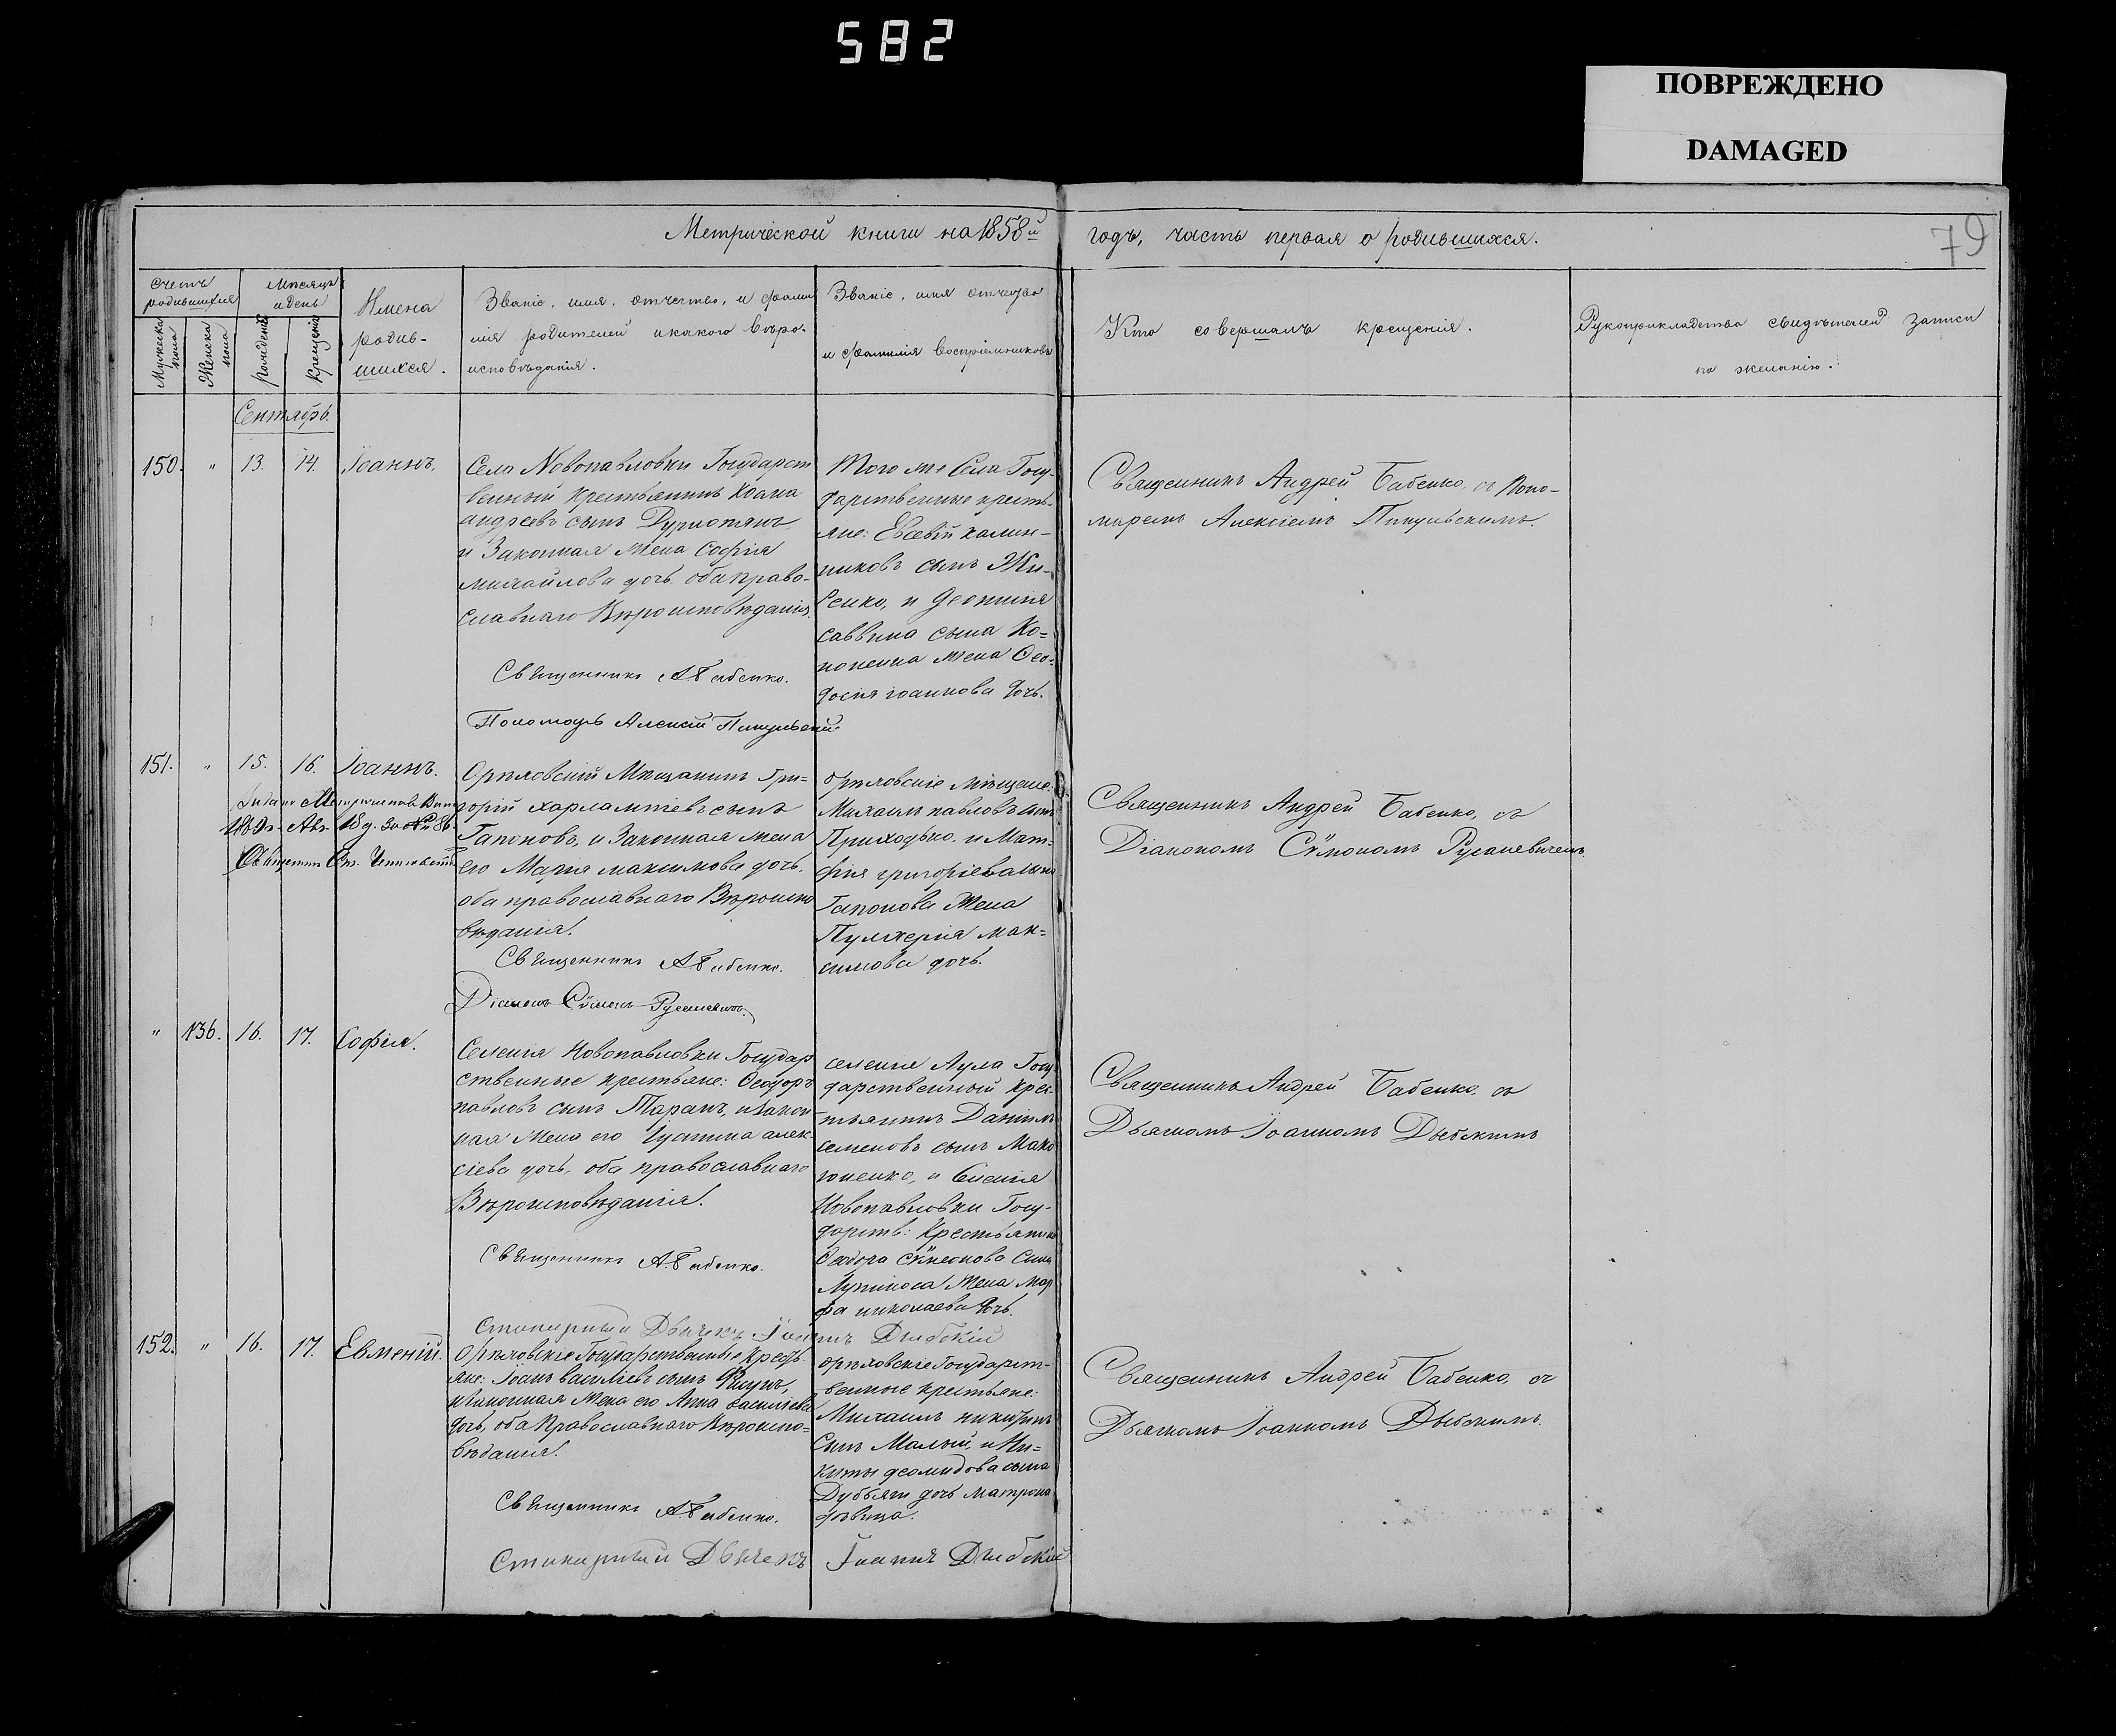 582
ПОВРЕЖДЕНО
DAMAGED
Метрической книги на 1858й
годъ, часть первая о родившихся.
79
Счетъ родившихся
Мѣсяцъ и день
Мужеска пола
Женска пола
рожденія
крещенія
Имена
родив-
шихся.
Званіе, имя, отчество, и фами
лія родителей и какого вѣро-
исповѣданія.
Званіе, имя отчество
и фамилія воспріемниковъ
Кто совершалъ крещенія.
Рукоприкладства свидѣтелей записи
по желанію.
Сентябрь.
150. " 13. 14. Іоаннъ.
Села Новопавловки Государст
венный крестьянинъ
андреевъ сынъ
и Законная жена Софія
михайлова дочь оба право-
славнаго Вѣроисповѣданія.
Священникъ А. Бабенко.
Пономарь Алексій
Того же Села Госу-
дарственные кресть-
яне: Евсевій калин-
никовъ сынъ Жи-
Сенко, и
саввина сына Ко-
ноненка жена Ѳео-
досія іоаннова дочь.
Священникъ Андрей Бабенко, съ Поно-
маремъ Алексіемъ
151. " 15. 16. Іоаннъ.
Орѣловскій Мѣщанинъ Гри-
горій харлампіевъ сынъ
Гапоновъ, и Законная жена
его Марія максимова дочь,
оба православнаго Вѣроиспо
вѣданія.
Священникъ А. Бабенко.
Діаконъ Сѵмонъ Русаневичъ.
орѣловскіе мѣщане:
Михаилъ павловъ сынъ
Приходько, и Мат-
фія григоріева сына
Гапонова Жена
Пулхерія мак=
симова дочь.
Священникъ Андрей Бабенко, съ
Діакономъ Сѵмономъ Русаневичемъ.
" 136. 16. 17. Софія.
Селенія Новопавловки Государ
ственные крестьяне: Ѳеодоръ
павловъ сынъ Таранъ, и закон
ная Жена его Іустина алек
сіева дочь, оба православнаго
Вѣроисповѣданія.
Священникъ А. Бабенко.
Дьячекъ Іоаннъ Дыбскій
селенія Аула Госу
дарственный крес-
тьянинъ Даніилъ
семеновъ сынъ Мако
гоненко, и Селенія
Новопавловки Госу-
дарств: Крестьянина
Ѳеодора сѵмеонова Сына
Жена Мар
фа николаева дочь.
Священникъ Андрей Бабенко. съ
Дьячкомъ Іоанномъ Дыбскимъ
152. " 16. 17. Евменій.
Орѣловскіе Государственные Кресть
яне: Іоанъ василіевъ сынъ
и Законная Жена его Анна василіева
дочь, оба Православнаго Вѣроиспо=
вѣданія.
Священникъ А. Бабенко.
Дьячекъ Іоаннъ Дыбскій
орѣловскіе Государст-
венные крестьяне:
Михаилъ никитинъ
Сынъ Малый, и Ни=
киты деомидова сына
Дубяги дочь матрона
дѣвица.
Священникъ Андрей Бабенко, съ
Дьячкомъ Іоанномъ Дыбскимъ.